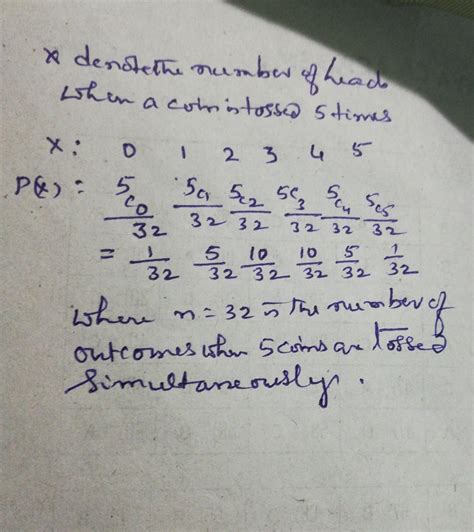 X denote the number of heads
when a coin is tossed 5 times
X: 0 1 2 3 4 5
P(x): 5C0/32 5C1/32 5C2/32 5C3/32 5C4/32 5C5/32
= 1/32 5/32 10/32 10/32 5/32 1/32
where n = 32 is the number of
outcomes when 5 coins are tossed
Simultaneously.